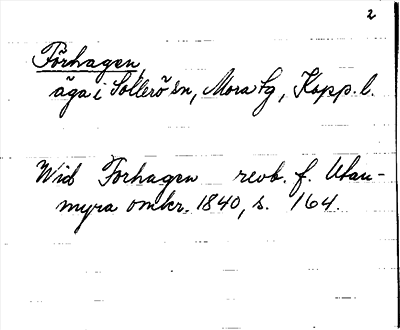 2
Förhagen,
äga i Sollerö sn, Mora tg, Kopp. l.
Wid Forhagen revb. f. Utan-
myra omkr. 1840, s. 164.